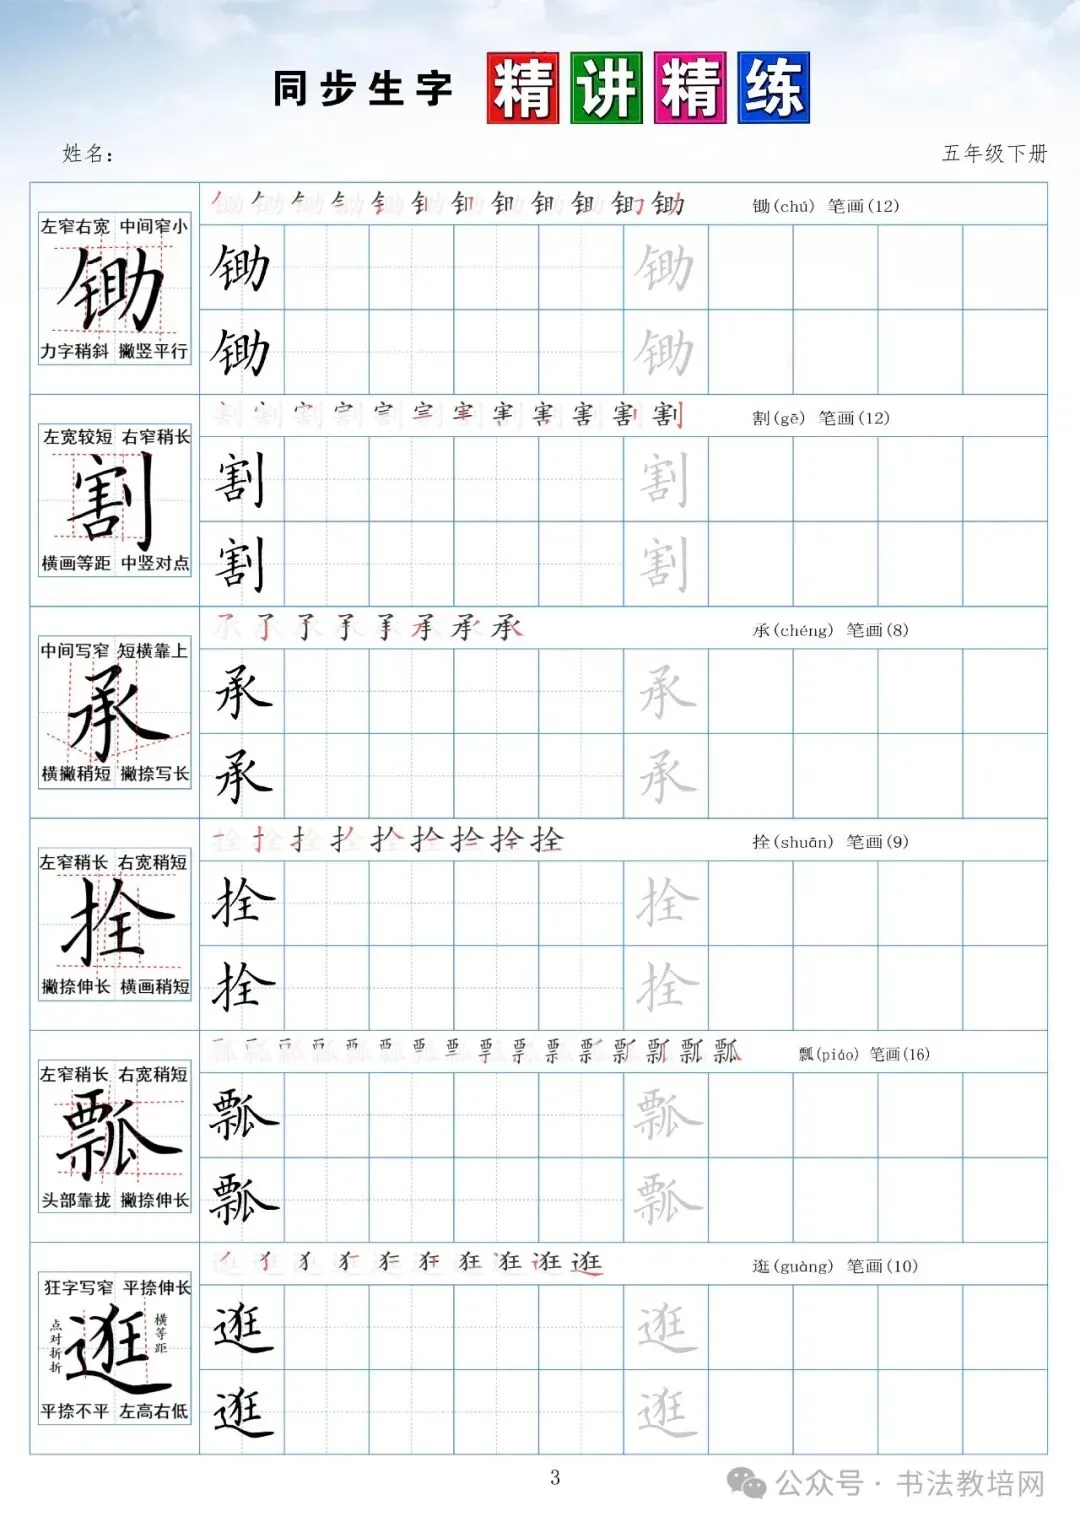 同步生字 精讲精练
姓名：
五年级下册
左窄右宽 中间窄小
锄
力字稍斜 撇竖平行
锄(chú) 笔画(12)
锄 锄
锄 锄
左宽较短 右窄稍长
割
横画等距 中竖对点
割(gē) 笔画(12)
割 割
割 割
中间写窄 短横靠上
承
横撇稍短 撇捺写长
承(chéng) 笔画(8)
承 承
承 承
左窄稍长 右宽稍短
拴
撇捺伸长 横画稍短
拴(shuān) 笔画(9)
拴 拴
拴 拴
左窄稍长 右宽稍短
瓢
头部靠拢 撇捺伸长
瓢(piáo) 笔画(16)
瓢 瓢
瓢 瓢
狂字写窄 平捺伸长
点对折折
逛
横等距
平捺不平 左高右低
逛(guàng) 笔画(10)
逛 逛
逛 逛
3
公众号·书法教培网